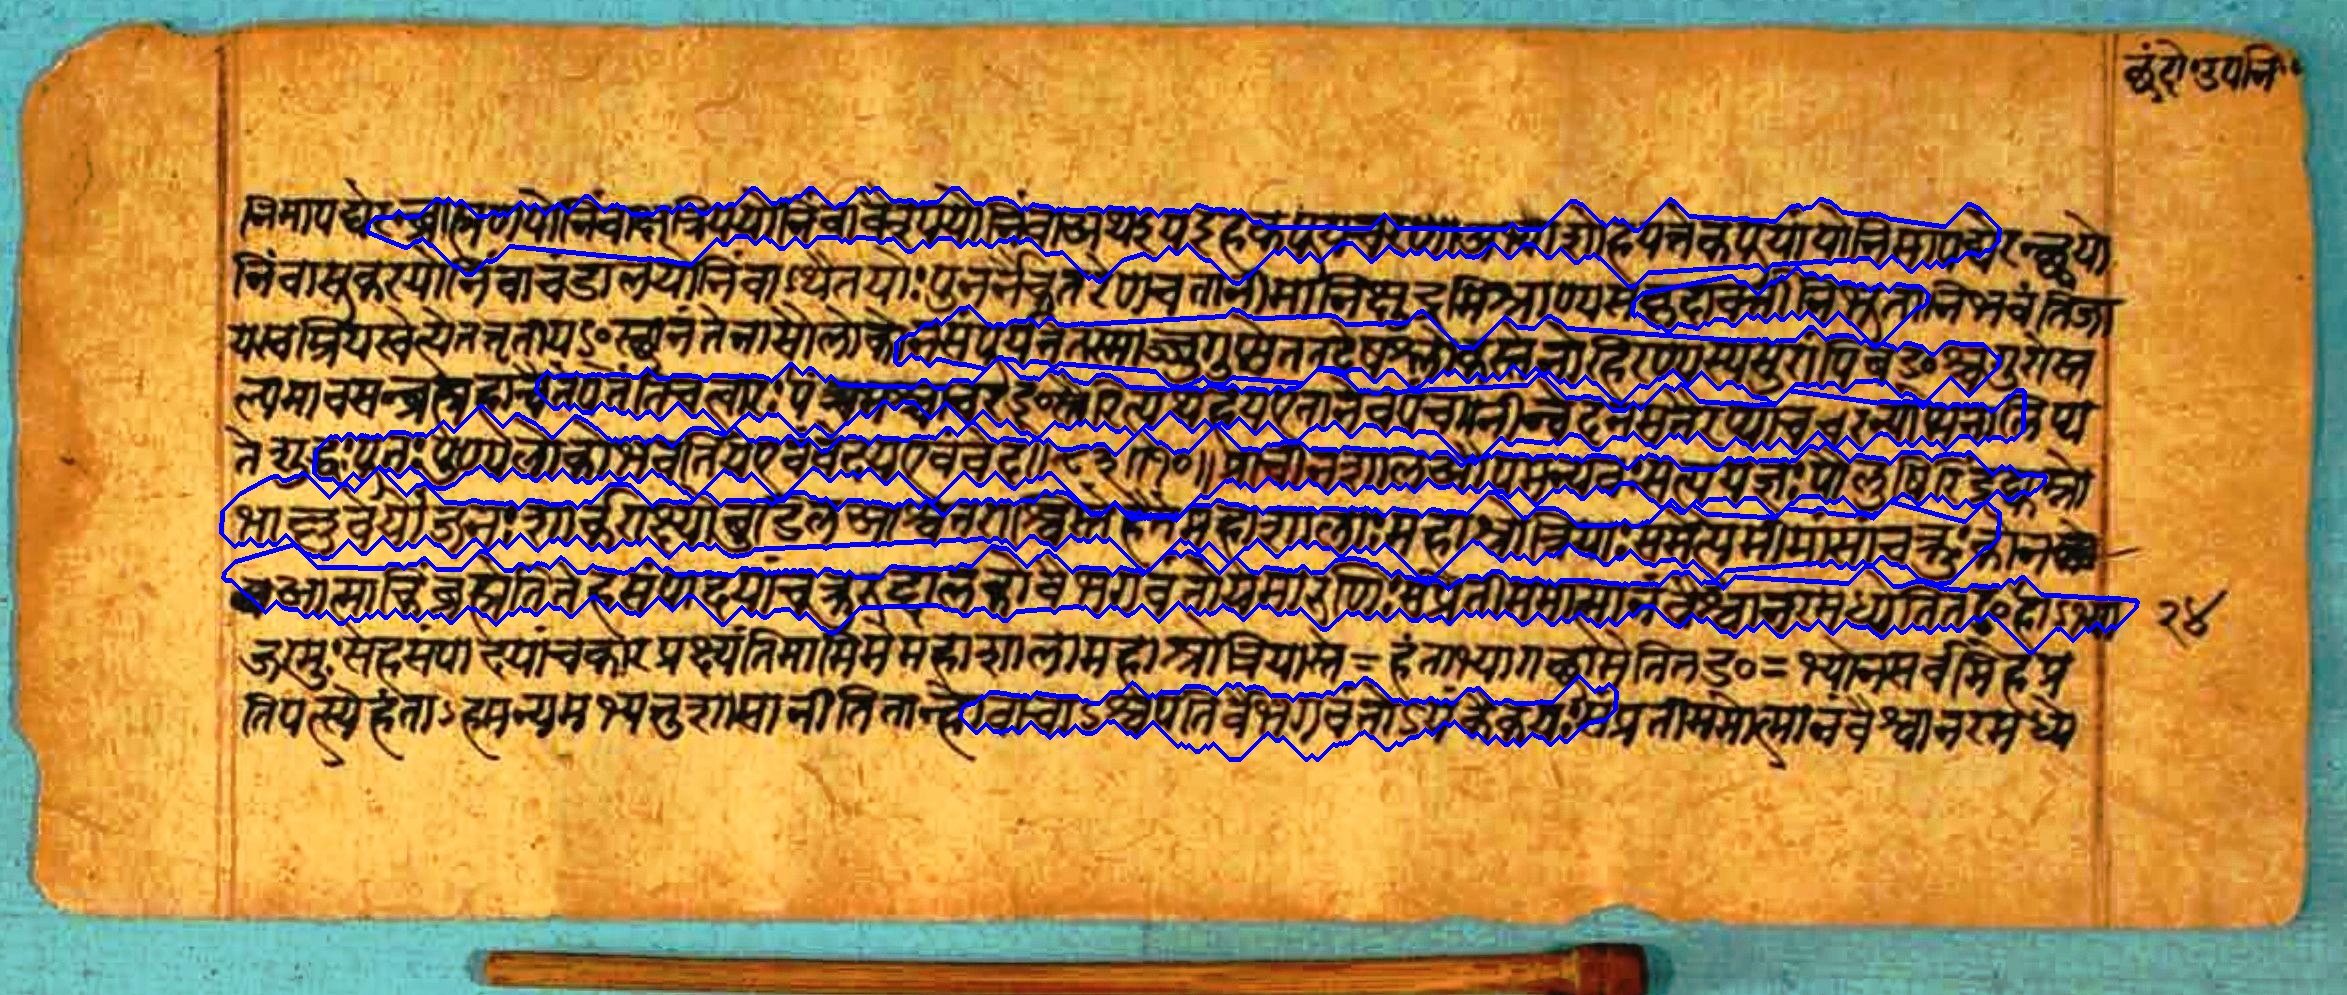 छंदो॰उपनि॰
निमापद्येरन्ब्राह्मणयोनिंवाक्षत्रिययोनिंवावैश्ययोनिंवाअथयइहकपूयचरणाअभ्याशोहयत्तेकपूयांयोनिमापद्येरन्छ्वयो
निंवासूकरयोनिंवाचंडालयोनिंवाऽथैतयोःपुनर्नैकतरेणचतानीमानिक्षुद्रमिश्राण्यसकृदावर्त्तीनिभूतानिभवंतिजा
यस्वम्रियस्वेत्येतत्तृतीयऽ॰स्थानंतेनासौलोकोनसंपूर्यतेतस्माज्जुगुप्सेततदेषश्लोकःस्तेनोहिरण्यस्यसुरांपिबऽ॰श्चगुरोस्त
ल्पमावसन्ब्रह्महाचैतेपतंतिचत्वारःपंचमश्चाचरऽ॰स्तैरित्यथहयएतानेवंपंचाग्नीन्वेदनसहतैरप्याचरन्पाप्मनालिप्य
तेशुद्धःपूतःपुण्यलोकोभवतियएवंवेदयएवंवेद॥१०॥प्राचीनशालऔपमन्यवःसत्ययज्ञःपौलुषिरिंद्रद्युम्नो
भाल्लवेयोजनःशार्कराक्ष्योबुडिलआश्वतराश्विस्तेहैतेमहाशालाःमहाश्रोत्रियाःसमेत्यमीमांसांचक्रुःकोन
आत्माकिंब्रह्मेतितेहसंपादयांचक्रुरुद्दालकोवैभगवंतोयमारुणिःसंप्रतीममात्मानंवैश्वानरमध्येतितऽ॰हाऽभ्या
२४
जग्मुःसहसंपादयांचकारप्रक्ष्यंतिमामिमेमहाशालामहाश्रोत्रियास्ते=हंताभ्यागच्छामेतितऽ॰=भ्योनसर्वमिहप्र
तिपत्स्येहंताऽहमन्यमभ्यनुशासानीतितान्होवाचाऽश्वपतिर्वैभगवंतोऽयंकैकेयःसंप्रतीममात्मानंवैश्वानरमध्ये